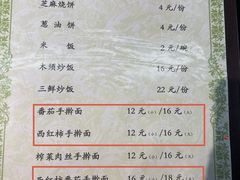 芝麻烧饼 4元/份
葱油饼 4元/份
米饭 2元/碗
木须炒饭 16元/份
三鲜炒饭 22元/份
番茄手擀面 12元(小)/16元(大)
西红柿手擀面 12元(小)/16元(大)
榨菜肉丝手擀面 12元(小)/16元(大)
西红柿番茄手擀面 16元(小)/18元(大)